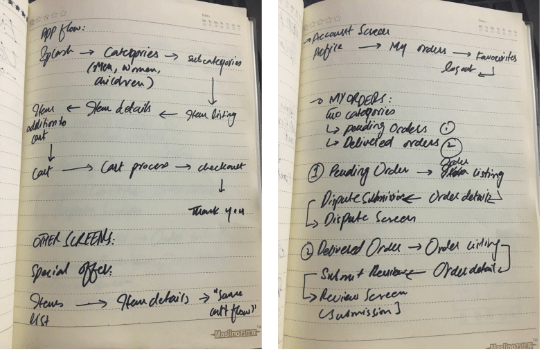 App flow:
Splash → Categories → subcategories
(men, women,
children)
Item ← Item details ← Item listing
addition to
cart
Cart → Cart process → checkout
Thank you
OTHER SCREENS:
Special offer:
Items → Item details → "same
list cart flow"
→ Account Screen
Profile → My orders → Favourites
logout
→ MY ORDERS:
two categories
↳ pending orders ①
↳ Delivered orders ②
① Pending Order → Order listing
Dispute submission ← Order details
→ Dispute Screen
② Delivered Order → Order listing
Submit Review ← Order details
→ Review Screen
(submission)